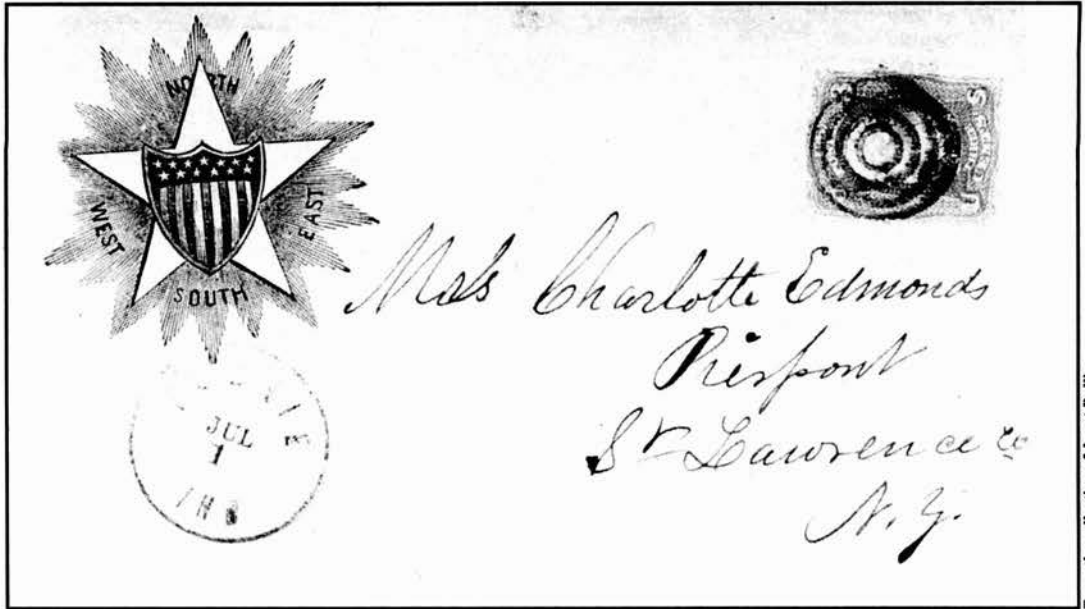 NORTH
WEST
EAST
SOUTH
Mrs Charlotte Edmonds
Pierpont
St Lawrence Co
N. Y.
JUL
1